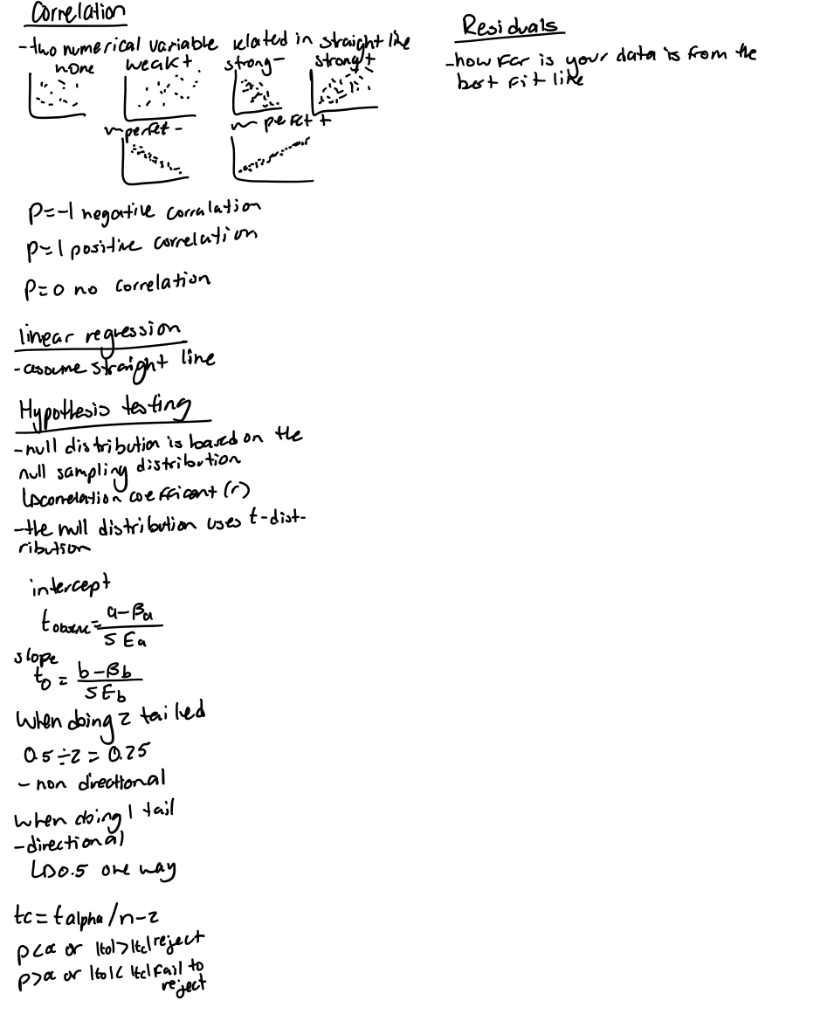 Correlation
-two numerical variable related in straight line
none weak+ strong- strong+
~perfect- ~perfect+
P=-1 negative corralation
P=1 positive correlation
P=0 no correlation
linear regression
-assume straight line
Hypothesis testing
-null distribution is based on the
null sampling distribution
↳correlation coefficant (r)
-the null distribution uses t-dist-
ribution
intercept
t observe = a-βa
SEa
slope
to = b-βb
SEb
When doing 2 tailed
0.5÷2=0.25
- non directional
when doing 1 tail
-directional
↳0.5 one way
tc=talpha/n-2
p<α or |to|>|tc|reject
p>α or |to|<|tc|fail to
reject
Residuals
-how far is your data is from the
best fit like